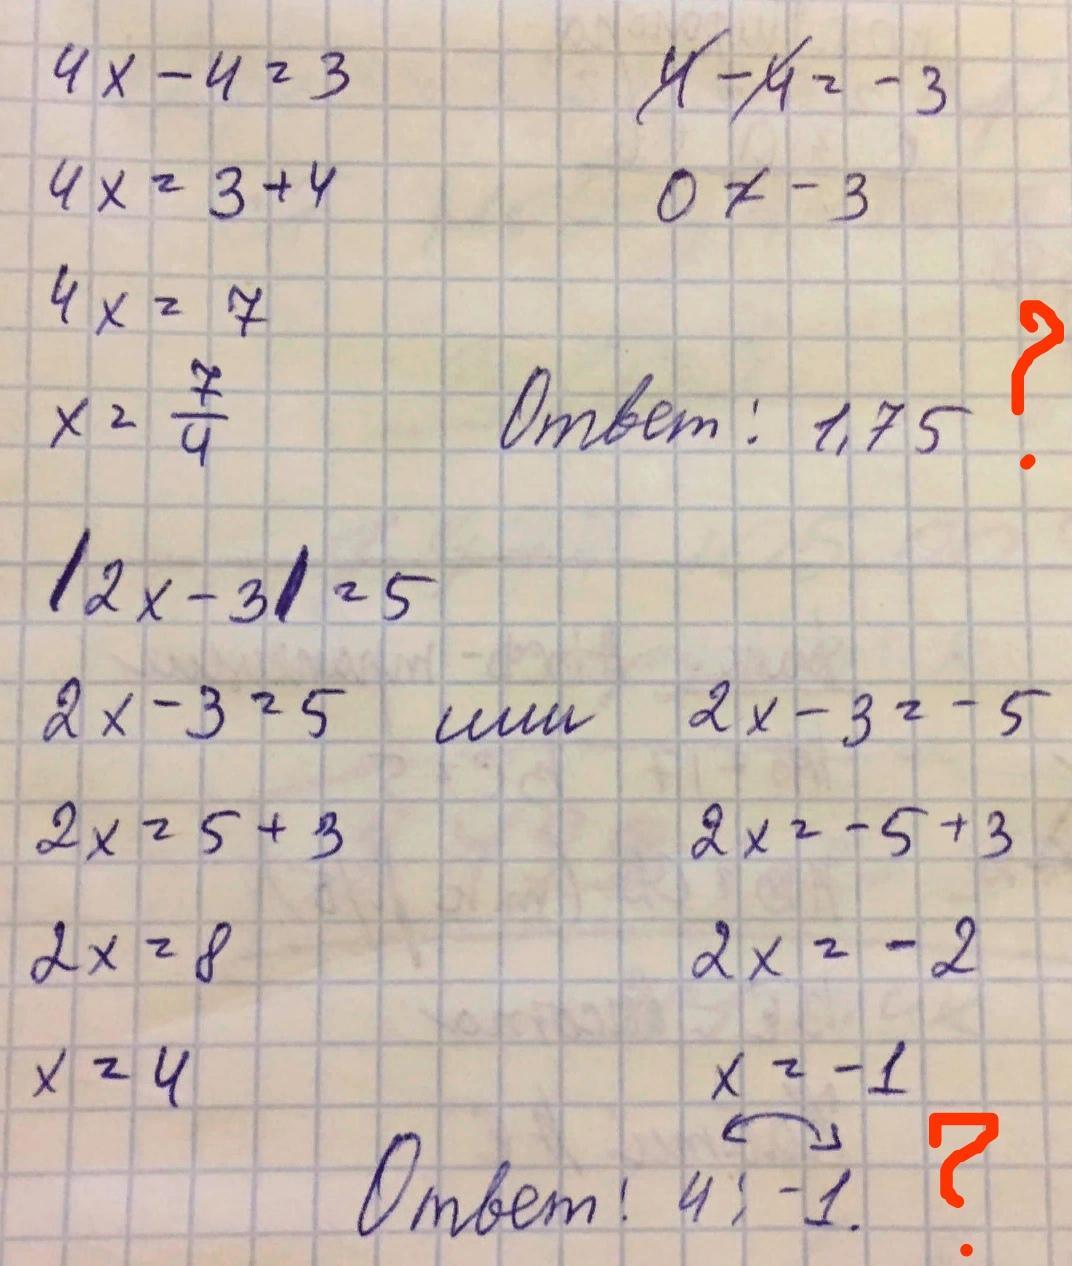 4x - 4 = 3    4 - 4 = -3
4x = 3 + 4    0 ≠ -3
4x = 7
x = 7/4    Ответ: 1,75 ?
|2x - 3| = 5
2x - 3 = 5 или 2x - 3 = -5
2x = 5 + 3    2x = -5 + 3
2x = 8    2x = -2
x = 4    x = -1
Ответ: 4; -1. ?